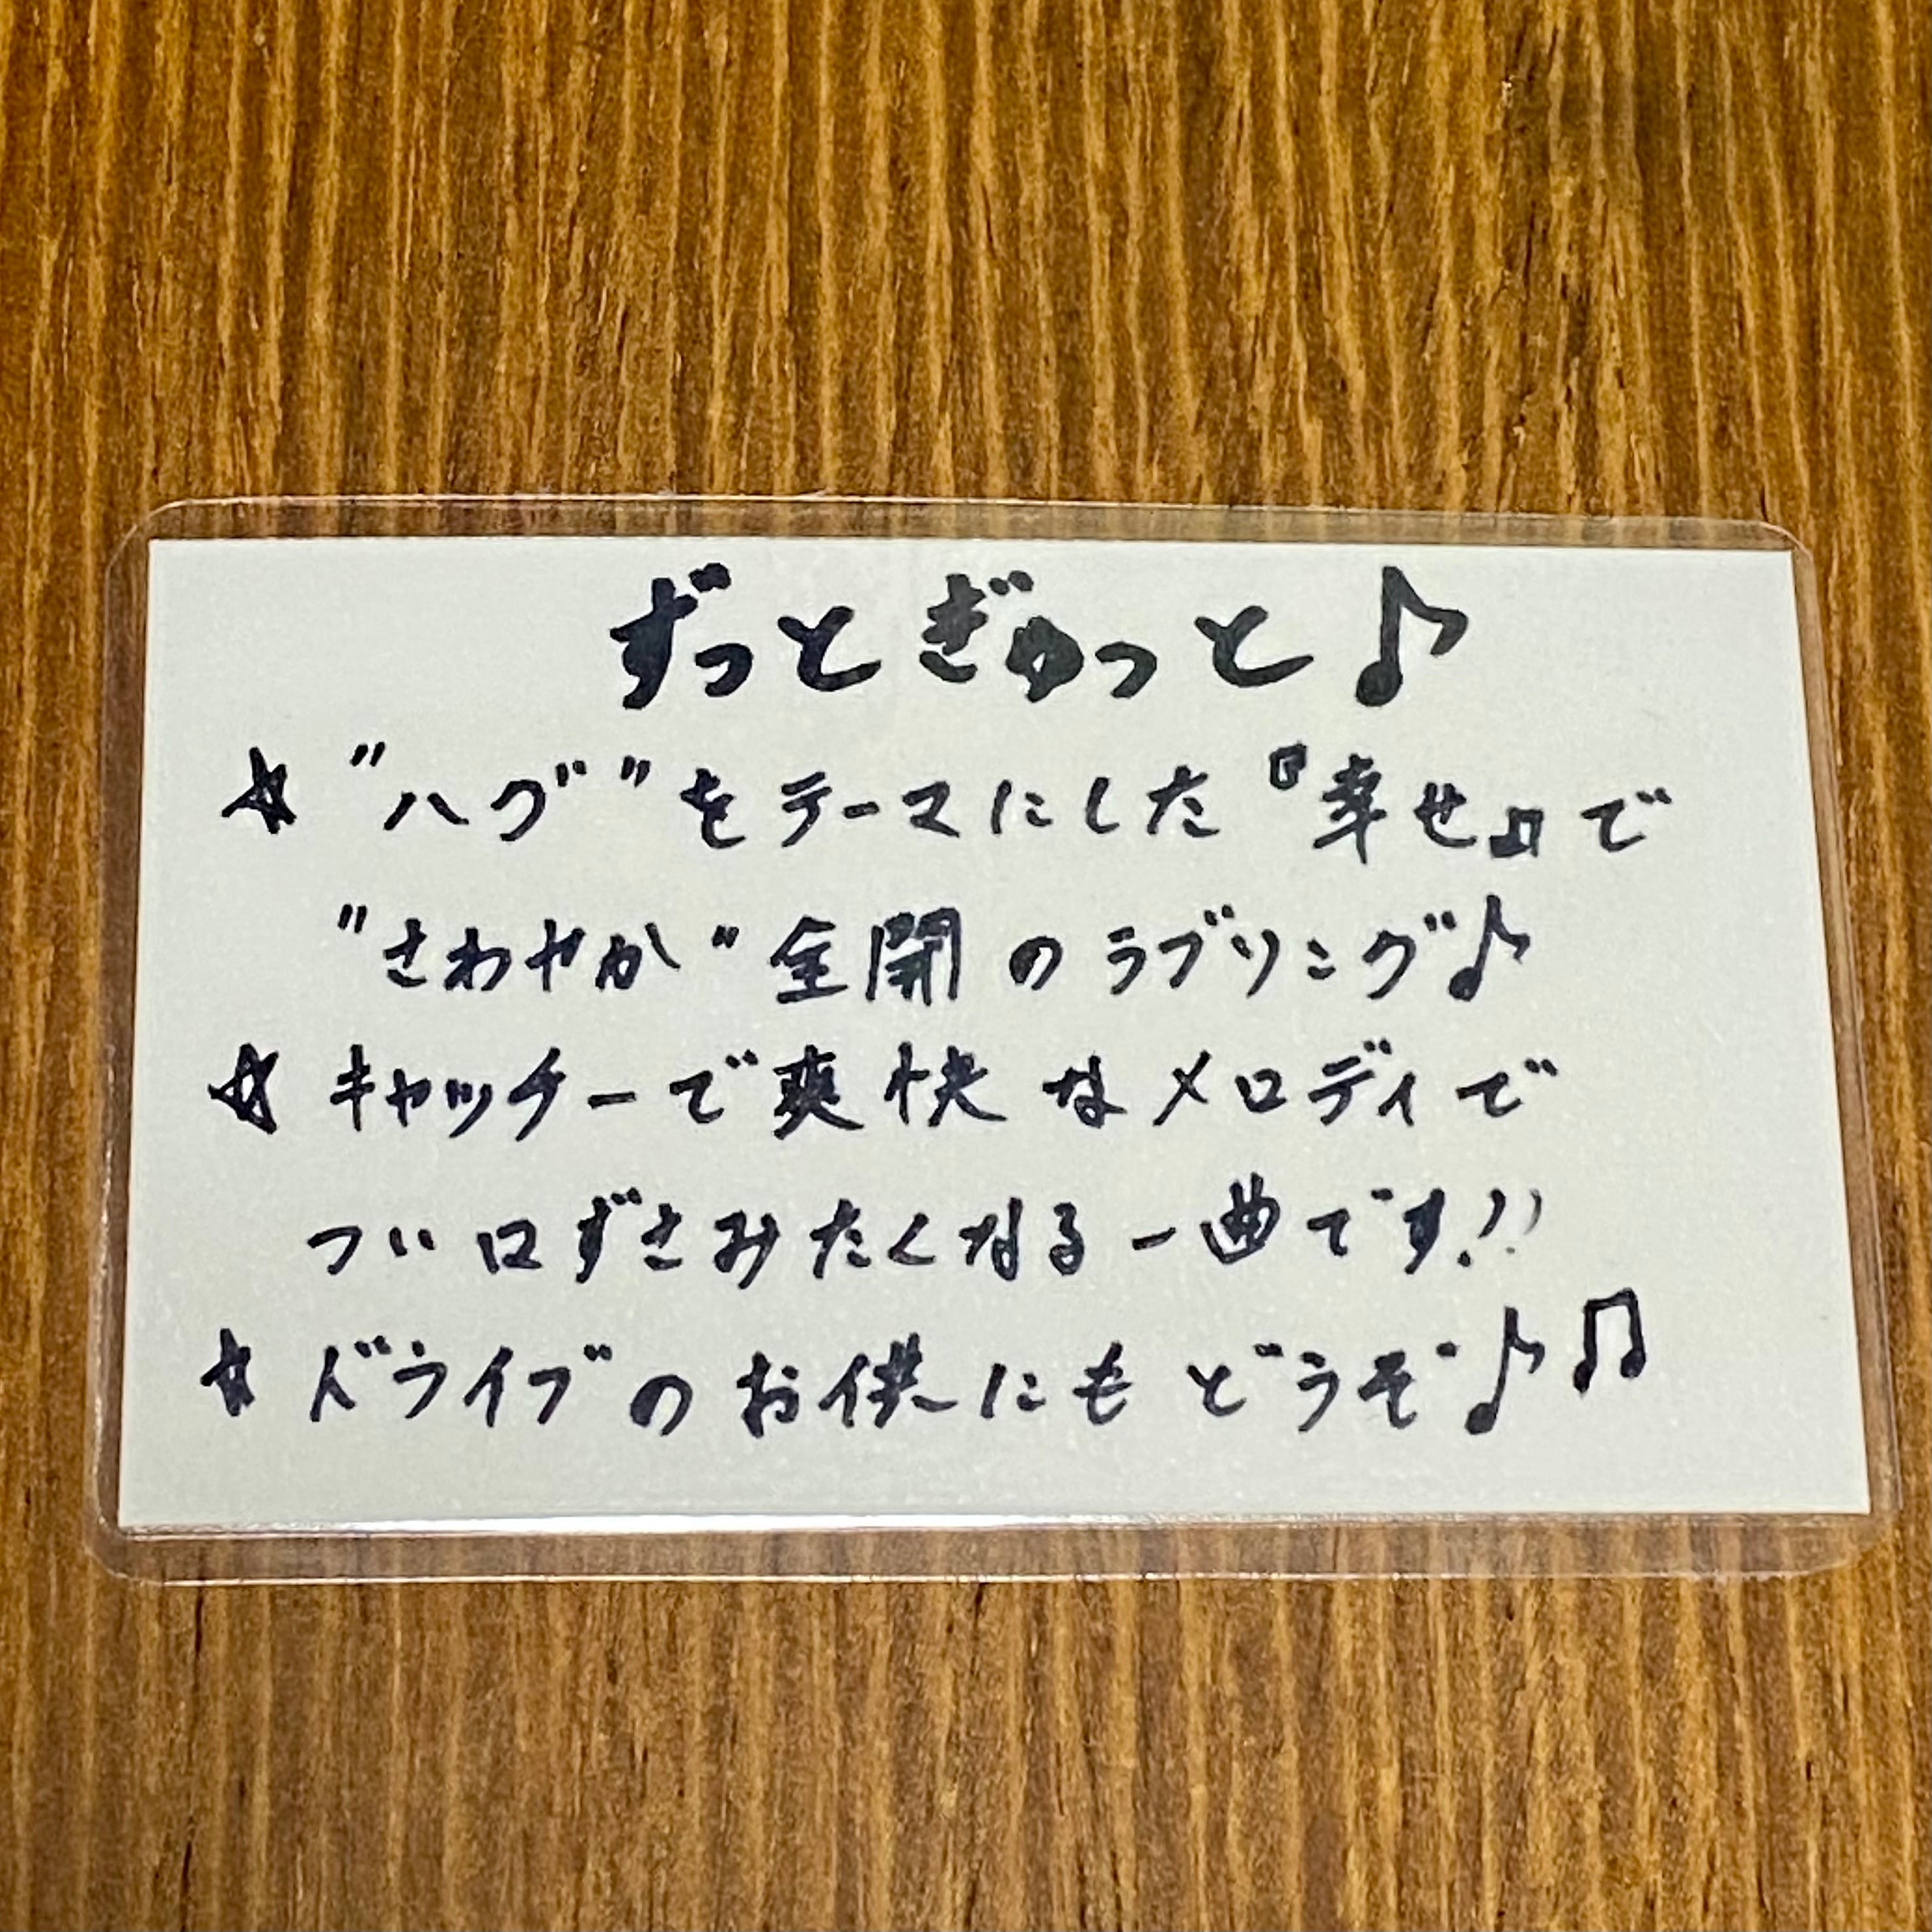 ずっとぎゅっと♪
☆"ハグ"をテーマにした『幸せ』で
"さわやか"全開のラブソング♪
☆キャッチーで爽快なメロディで
つい口ずさみたくなる一曲です!!
☆ドライブのお供にもどうぞ♪♫